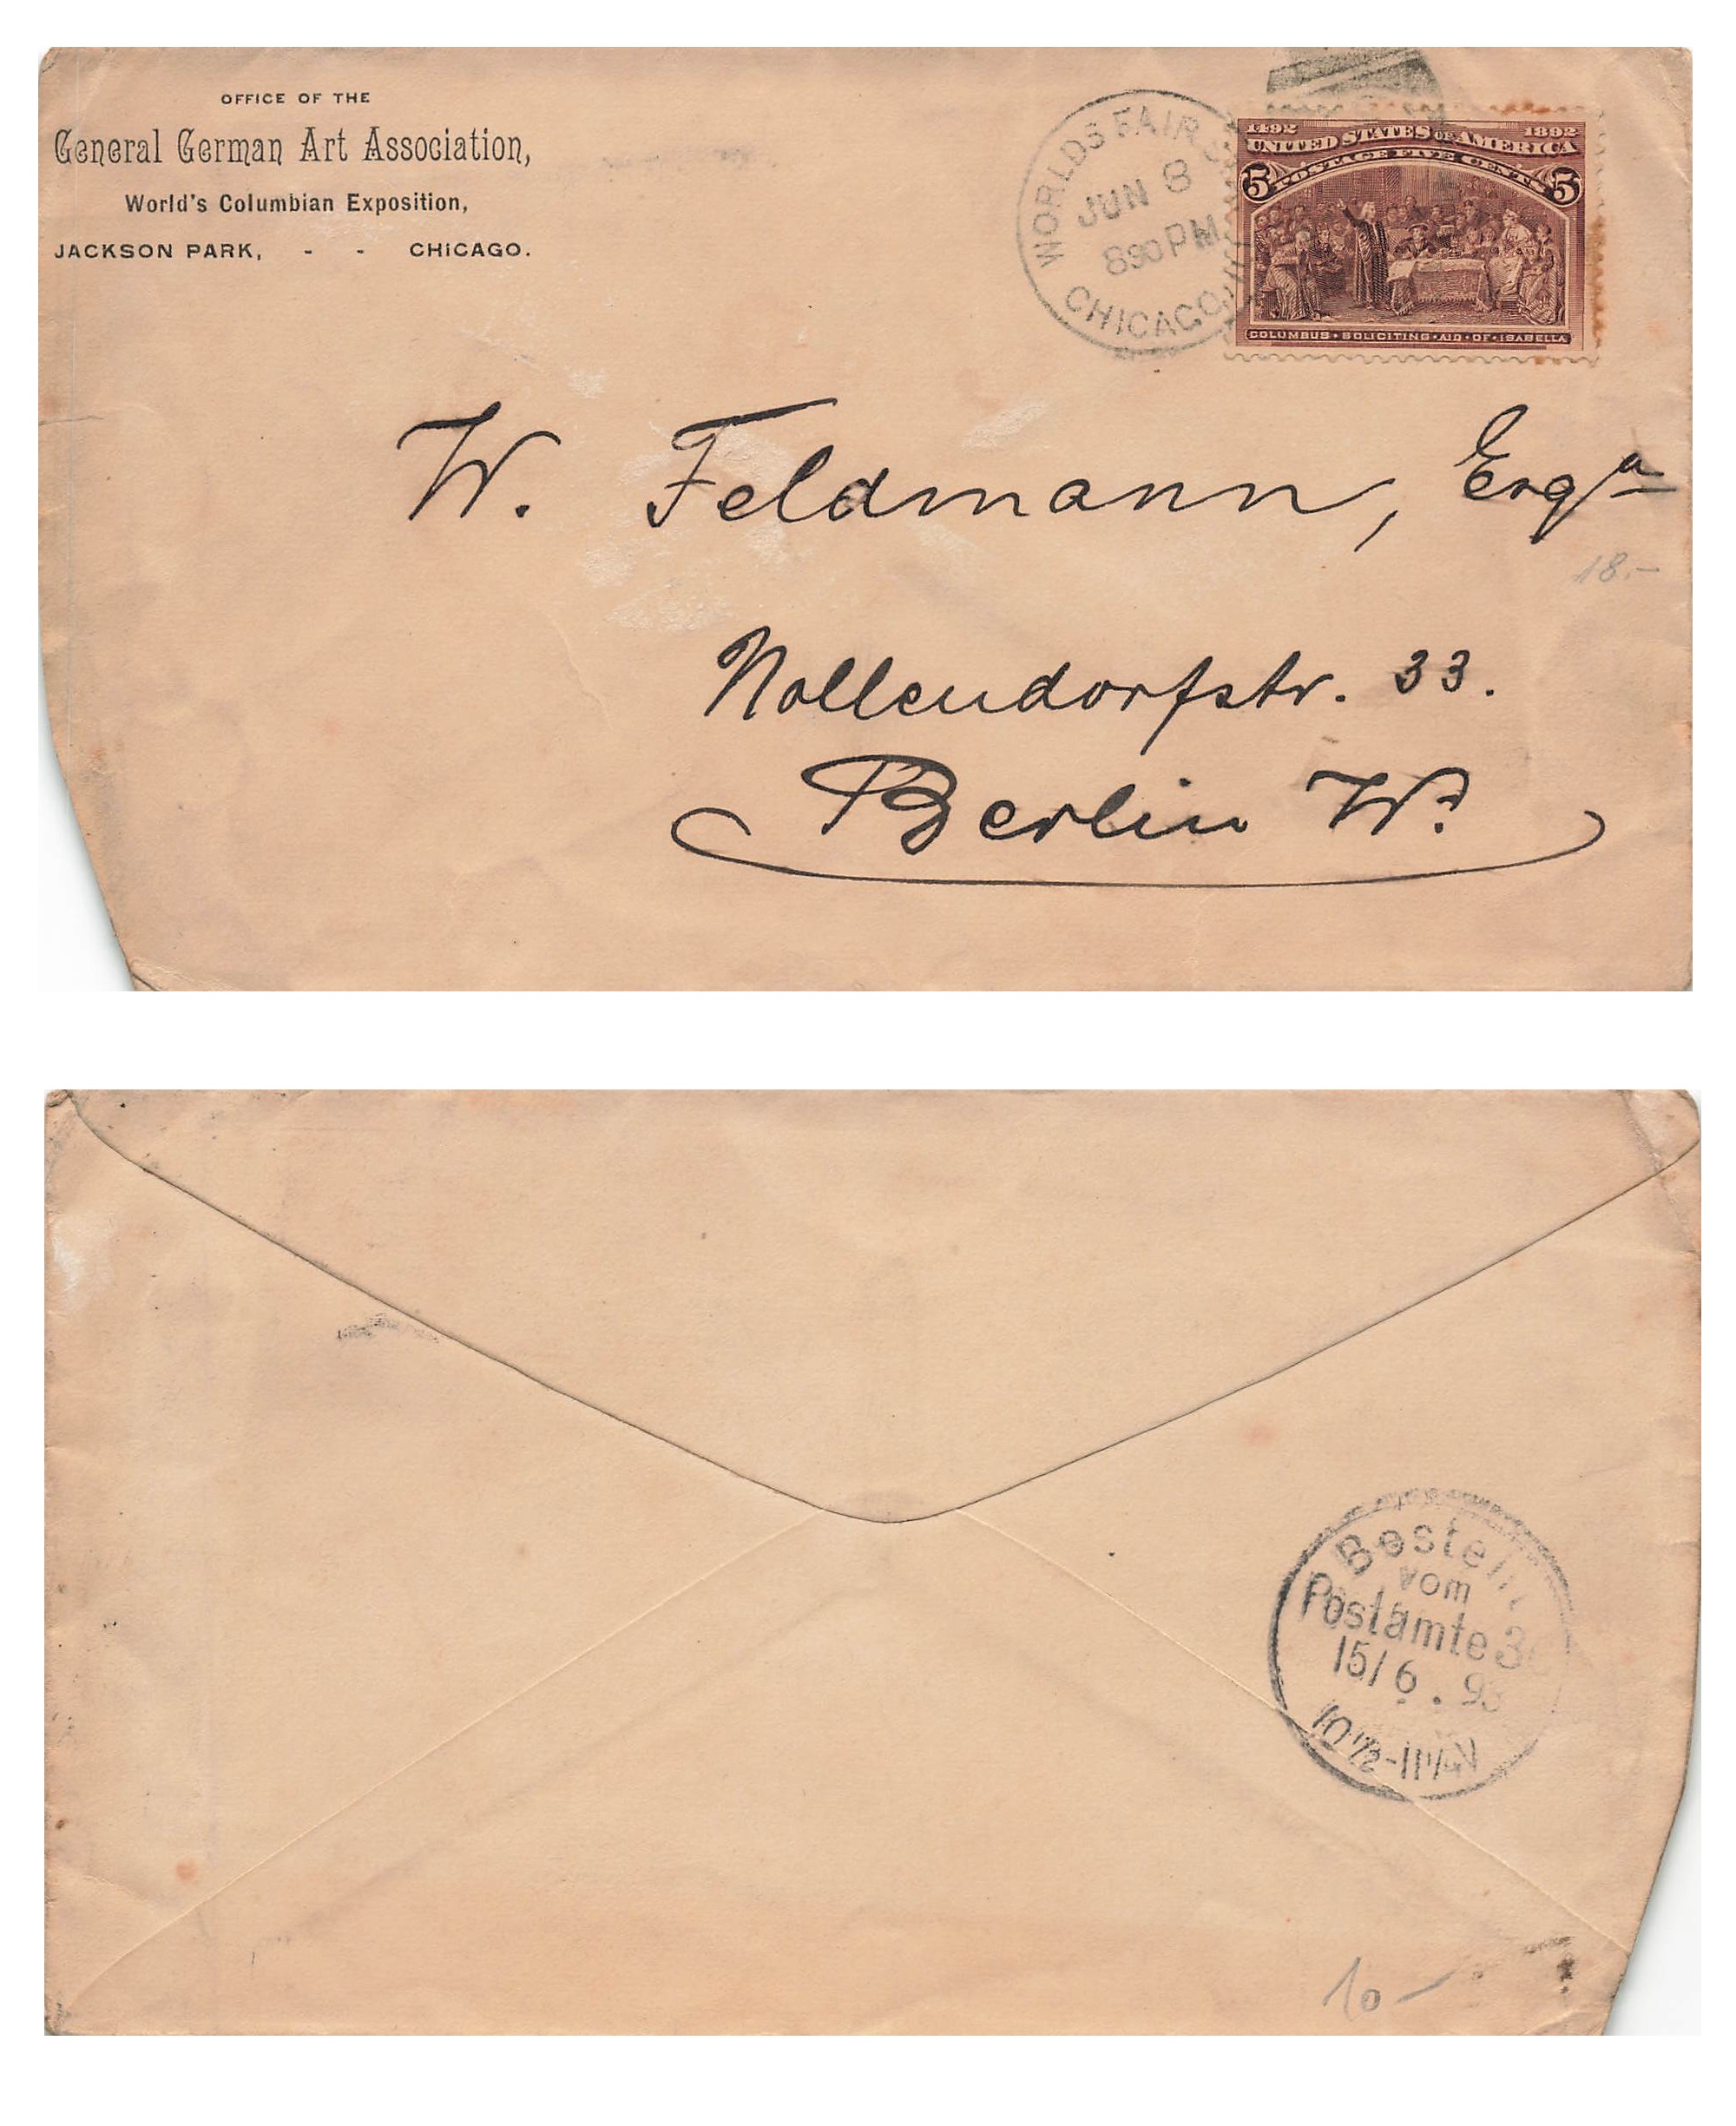 OFFICE OF THE
General German Art Association,
World's Columbian Exposition,
JACKSON PARK, - - CHICAGO.
WORLDS FAIR
JUN 8
830 PM
CHICAGO,
1492 1892
UNITED STATES OF AMERICA
POSTAGE FIVE CENTS
5 5
COLUMBUS · SOLICITING · AID · OF · ISABELLA
W. Feldmann, Esqre
18.-
Nollendorfstr. 33.
Berlin W.
Bestellt
vom
Postamte
15/6. 93
10½-11¼V
10-